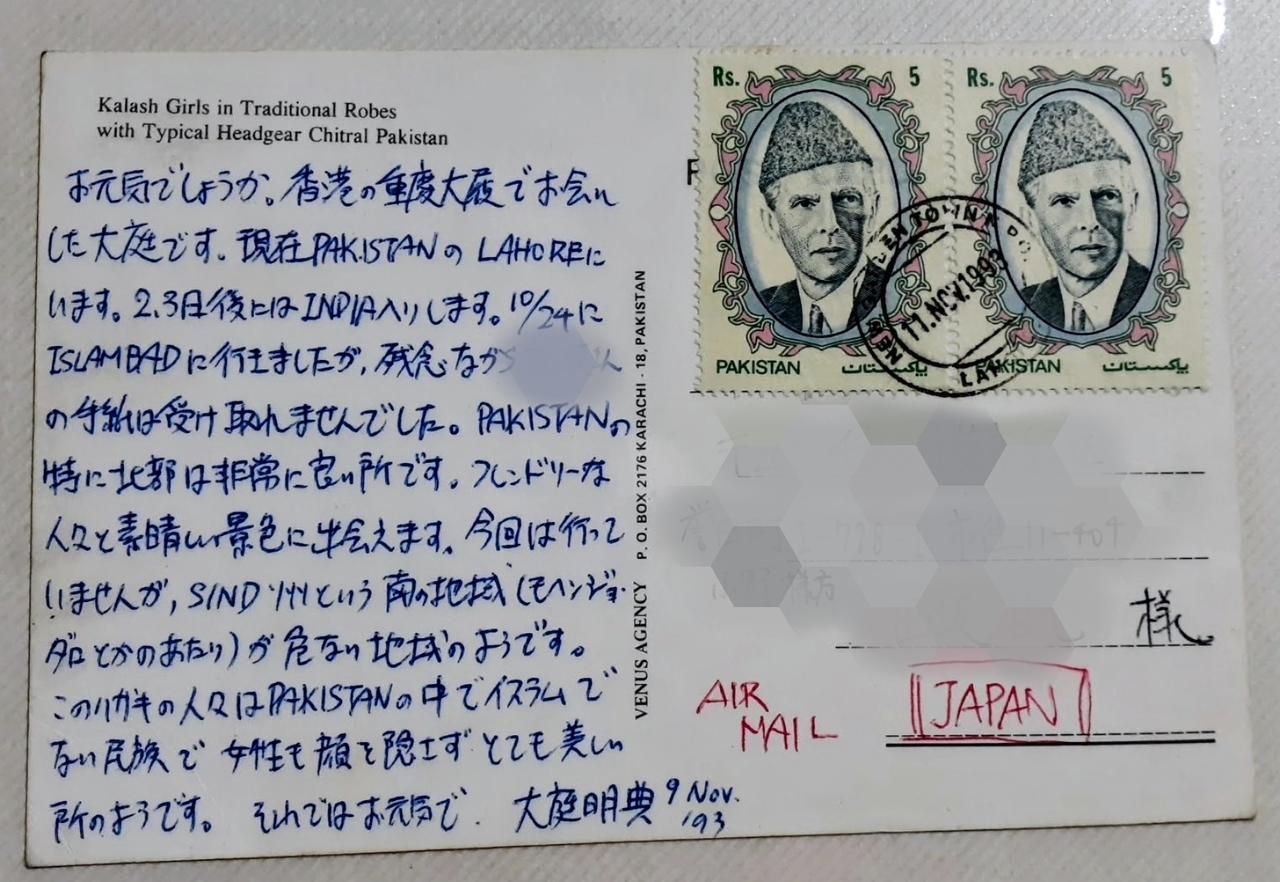 Kalash Girls in Traditional Robes
with Typical Headgear Chitral Pakistan
お元気でしょうか。香港の重慶大厦でお会い
した大庭です。現在PAKISTANのLAHOREに
います。2.3日後にはINDIA入りします。10/24に
ISLAMBADに行きましたが,残念なが
の手紙は受け取れませんでした。PAKISTANの
特に北部は非常に良い所です。フレンドリーな
人々と素晴しい景色に出会えます。今回は行って
いませんが,SIND州という南の地域(モヘンジョ・
ダロとかのあたり)が危ない地域のようです。
このハガキの人々はPAKISTANの中でイスラムで
ない民族で女性も顔を隠さずとても美しい
所のようです。それではお元気で. 大庭明典 9 Nov.
'93
VENUS AGENCY P. O. BOX 2176 KARACHI - 18, PAKISTAN
Rs. 5
PAKISTAN پاکستان
Rs. 5
PAKISTAN پاکستان
11.NOV.1993
様
AIR
MAIL
JAPAN